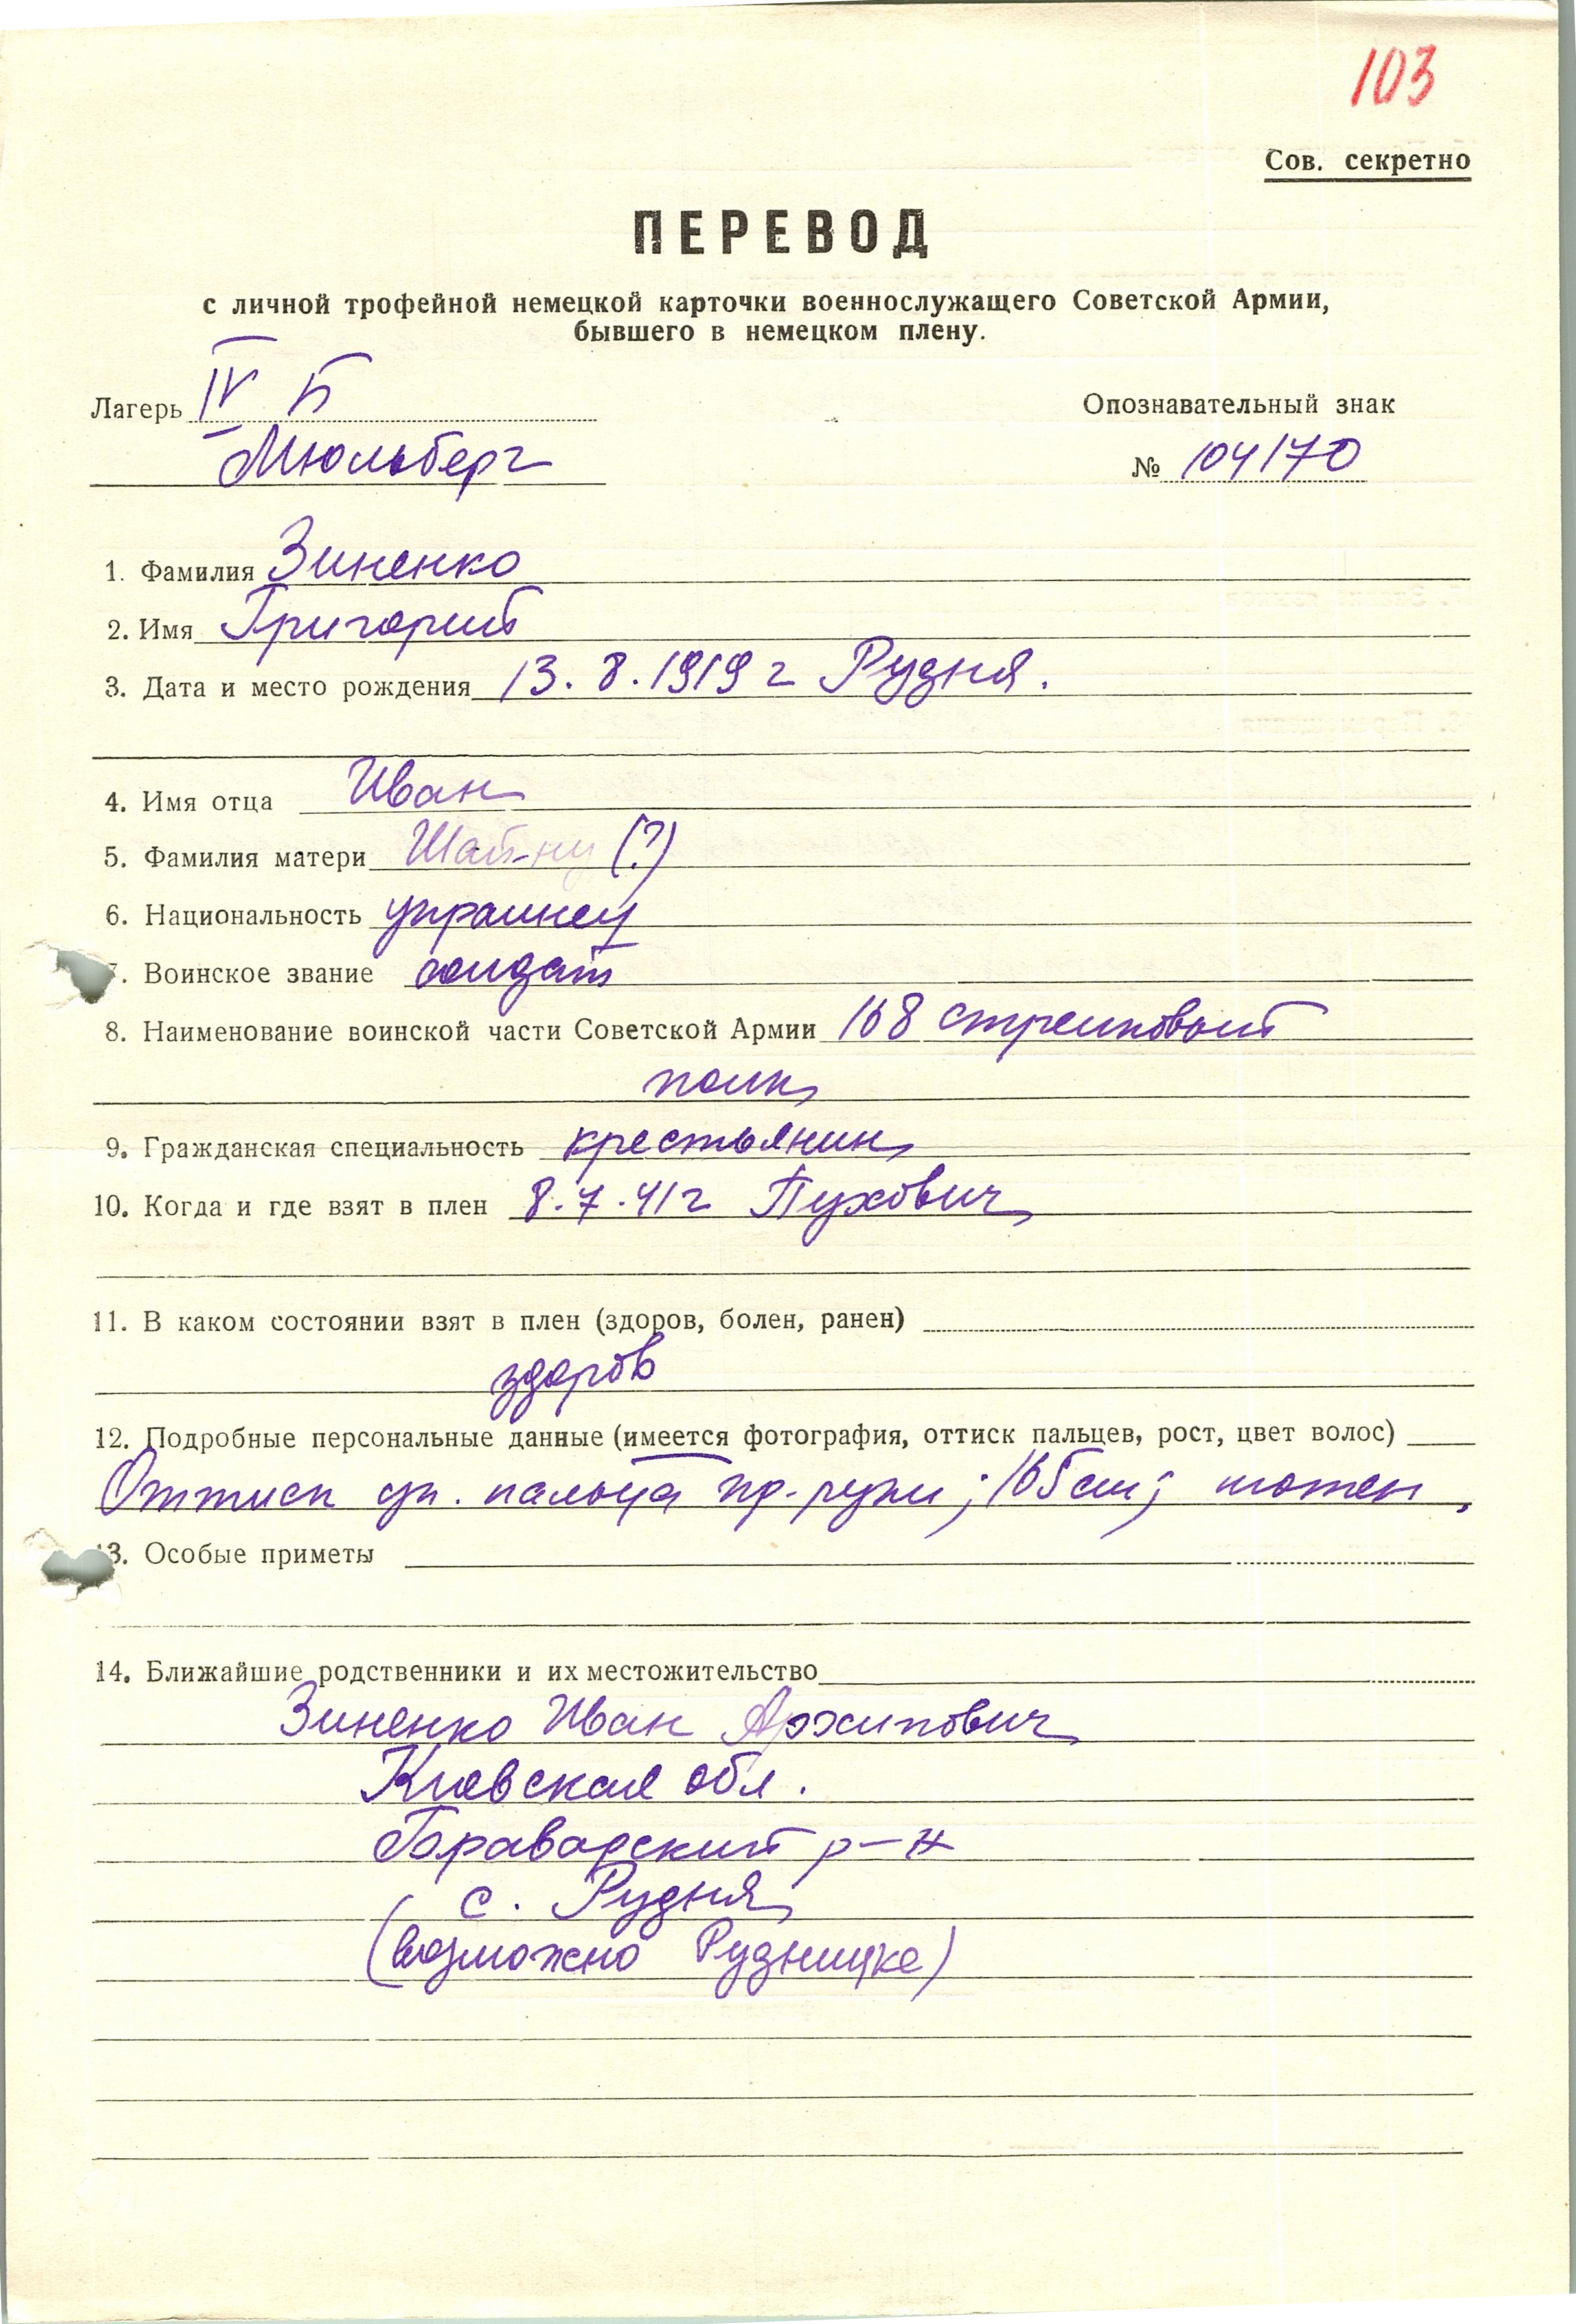 103
Сов. секретно
ПЕРЕВОД
с личной трофейной немецкой карточки военнослужащего Советской Армии,
бывшего в немецком плену.
Лагерь IV Б
Опознавательный знак
Мюльберг
№ 104170
1. Фамилия Зиненко
2. Имя Григорий
3. Дата и место рождения 13.8.1919 г Рудня.
4. Имя отца Иван
5. Фамилия матери (?)
6. Национальность украинец
7. Воинское звание солдат
8. Наименование воинской части Советской Армии 168 стрелковый
полк
9. Гражданская специальность крестьянин
10. Когда и где взят в плен 8.7.41 г Пухович
11. В каком состоянии взят в плен (здоров, болен, ранен)
здоров
12. Подробные персональные данные (имеется фотография, оттиск пальцев, рост, цвет волос)
Оттиск ук. пальца пр. руки; 165 см;
13. Особые приметы
14. Ближайшие родственники и их местожительство
Зиненко Иван Архипович
Киевская обл.
р-н
с. Рудня
(возможно Рудницке)